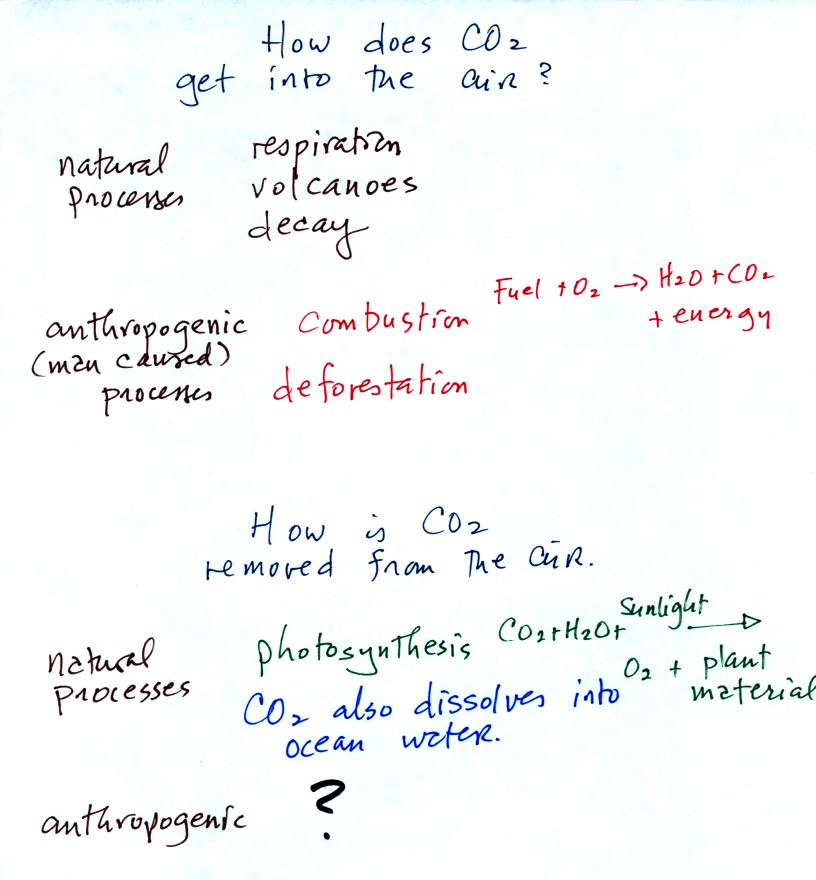 How does CO₂
get into the air?
natural
processes
respiration
volcanoes
decay
anthropogenic
(man caused)
processes
combustion
Fuel + O₂ → H₂O + CO₂
+ energy
deforestation
How is CO₂
removed from the air.
natural
processes
photosynthesis
CO₂ + H₂O + Sunlight →
O₂ + plant
material
CO₂ also dissolves into
ocean water.
anthropogenic
?